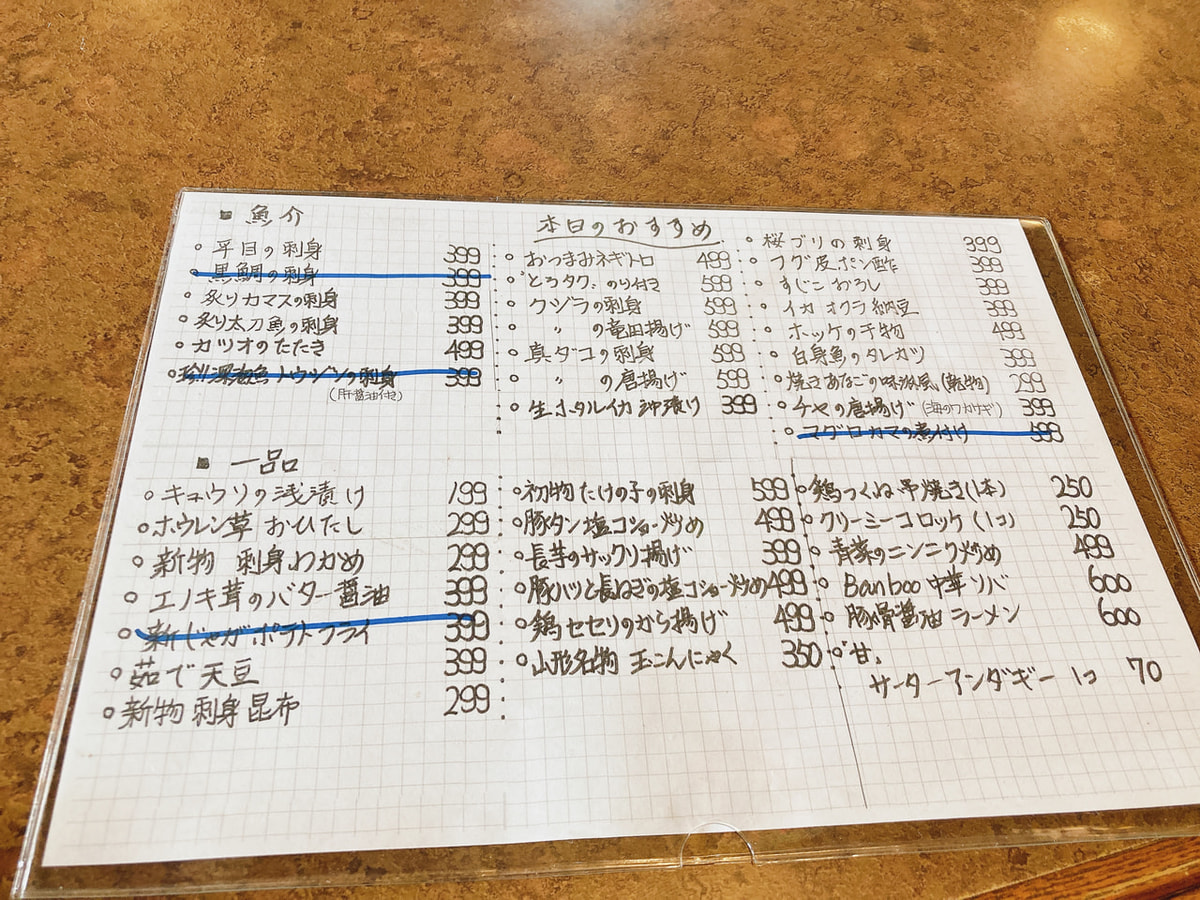 本日のおすすめ
■ 魚介
○ 平目の刺身 399
○ 黒鯛の刺身 399
○ 炙りカマスの刺身 399
○ 炙り太刀魚の刺身 399
○ カツオのたたき 499
○ 珍!!深海魚トウジンの刺身 399
(肝醤油付き)
○ おつまみネギトロ 499
○ とろタク。のり付き 599
○ クジラの刺身 599
○ 〃 の竜田揚げ 599
○ 真ダコの刺身 599
○ 〃 の唐揚げ 599
○ 生ホタルイカ沖漬け 399
○ 桜ブリの刺身 399
○ フグ皮ポン酢 399
○ すじこおろし 399
○ イカオクラ納豆 399
○ ホッケの干物 499
○ 白身魚のタレカツ 399
○ 焼きあなごの味淋風(乾物) 299
○ チカの唐揚げ(海のワカサギ) 399
○ マグロカマの煮付け 599
■ 一品
○ キュウリの浅漬け 199
○ ホウレン草おひたし 299
○ 新物 刺身わかめ 299
○ エノキ茸のバター醤油 399
○ 新じゃがポテトフライ 399
○ 茹で天豆 399
○ 新物 刺身昆布 299
○ 初物たけの子の刺身 599
○ 豚タン塩コショー炒め 499
○ 長芋のサックリ揚げ 399
○ 豚ハツと長ねぎの塩コショー炒め 499
○ 鶏セセリのから揚げ 499
○ 山形名物 玉こんにゃく 350
○ 鶏つくね串焼き(1本) 250
○ クリーミーコロッケ(1コ) 250
○ 青菜のニンニク炒め 499
○ Banboo 中華ソバ 600
○ 豚骨醤油ラーメン 600
○ 甘。
サーターアンダギー 1コ 70